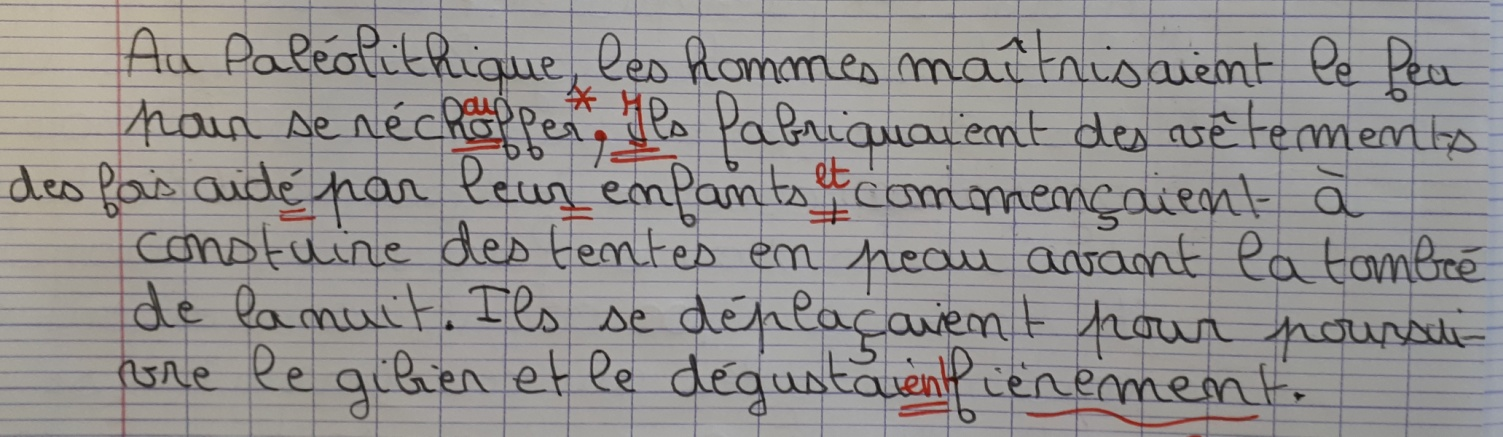 Au Paléolithique, les hommes maîtrisaient le feu
pour se réchauffer*, Ils fabriquaient des vêtements
des fois aidé par leur enfants et commençaient à
constuire des tentes en peau avant la tombée
de la nuit. Ils se déplaçaient pour poursui-
vre le gibier et le dégustaient fièrement.